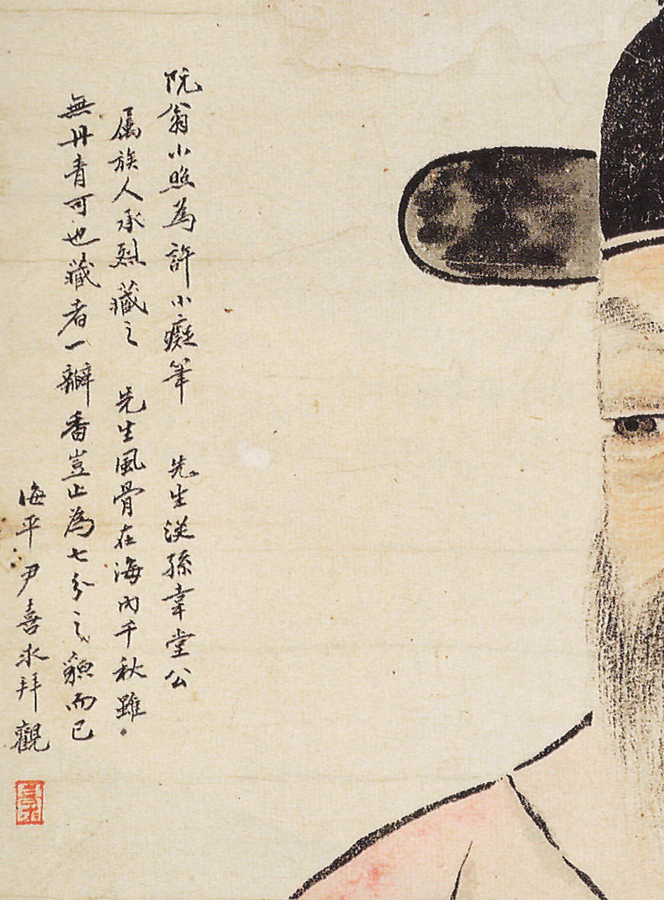 阮翁小照為許小癡筆 先生從孫韋堂公
屬族人承烈藏之 先生風骨在海內千秋雖
無丹青可也藏者一瓣香豈止為七分之貌而已
海平尹喜求拜觀